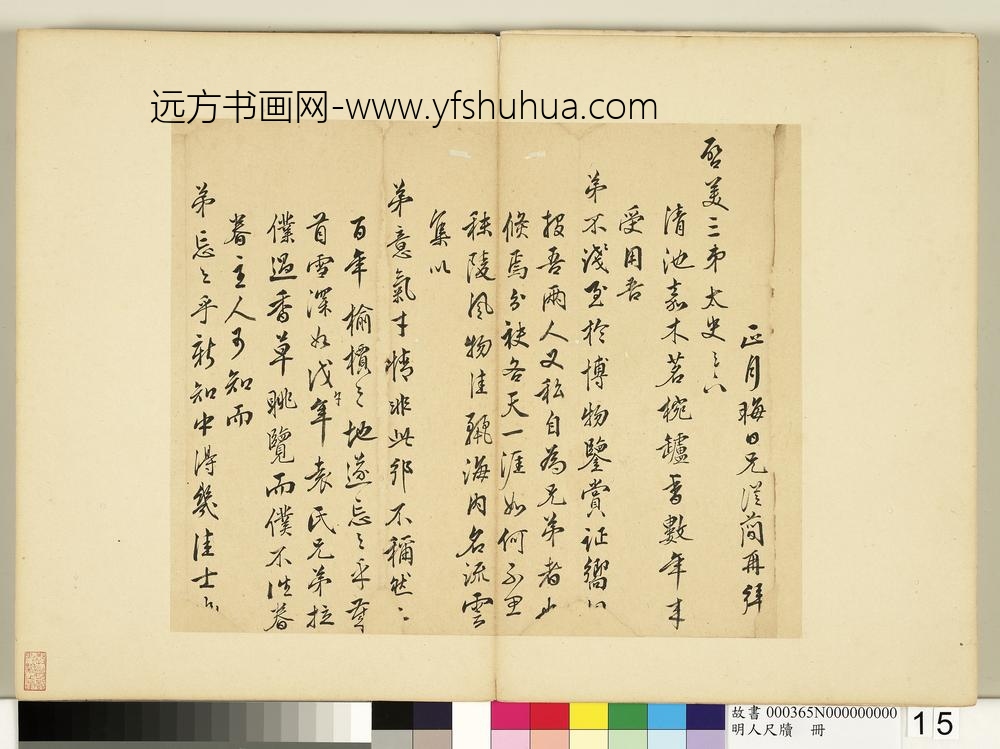 远方书画网-www.yfshuhua.com
正月晦日兄從簡再拜
啓美三弟太史
清池嘉木茗椀鑪香數年來
受用吾
弟不淺至於博物鑒賞証嚮以
報吾兩人又私自為兄弟者
倏焉分袂各天一涯如何不思
秣陵風物佳麗海內名流雲
集以
弟意氣才情非此邦不稱然
百年榆檟之地遂忘之乎
首雪深如戊午年袁氏兄弟拉
僕過香草眺覽而僕不
眷主人可知而
弟忘之乎新知中得幾佳士
故書 000365N000000000
明人尺牘 冊
15